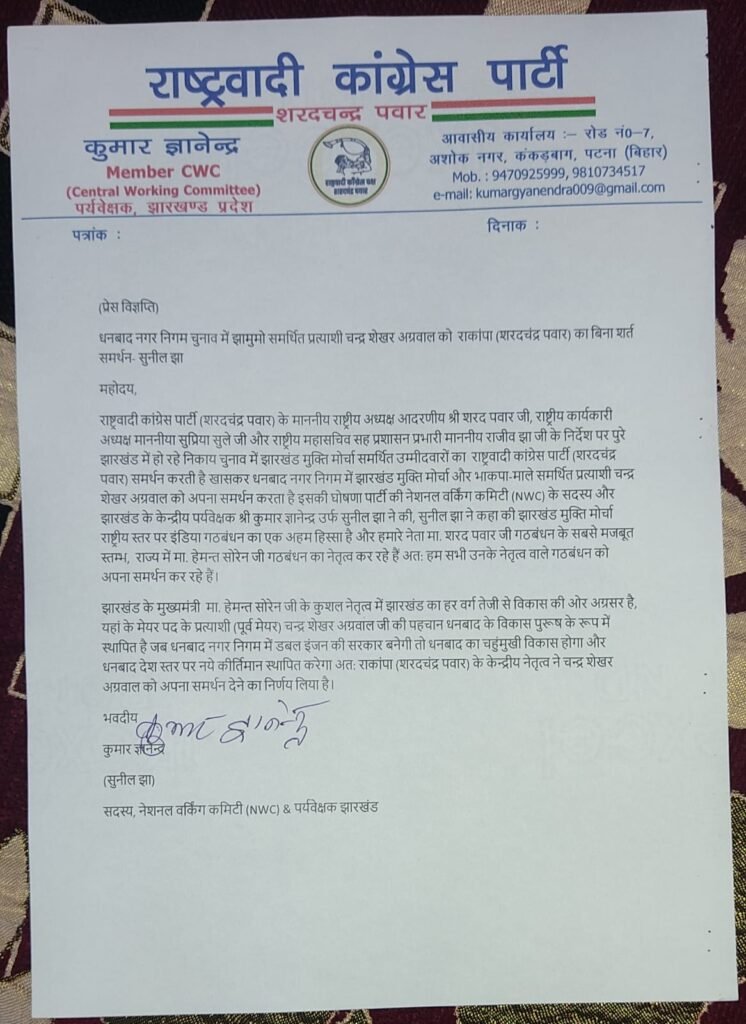 राष्ट्रवादी कांग्रेस पार्टी
शरदचन्द्र पवार
कुमार ज्ञानेन्द्र
Member CWC
(Central Working Committee)
पर्यवेक्षक, झारखण्ड प्रदेश
राष्ट्रवादी काँग्रेस पक्ष
शरदचंद्र पवार
आवासीय कार्यालय :– रोड नं0–7,
अशोक नगर, कंकड़बाग, पटना (बिहार)
Mob. : 9470925999, 9810734517
e-mail: kumargyanendra009@gmail.com
पत्रांक :
दिनाक :
(प्रेस विज्ञप्ति)
धनबाद नगर निगम चुनाव में झामुमो समर्थित प्रत्याशी चन्द्र शेखर अग्रवाल को राकांपा (शरदचंद्र पवार) का बिना शर्त
समर्थन- सुनील झा
महोदय,
राष्ट्रवादी कांग्रेस पार्टी (शरदचंद्र पवार) के माननीय राष्ट्रीय अध्यक्ष आदरणीय श्री शरद पवार जी, राष्ट्रीय कार्यकारी
अध्यक्ष माननीया सुप्रिया सुले जी और राष्ट्रीय महासचिव सह प्रशासन प्रभारी माननीय राजीव झा जी के निर्देश पर पुरे
झारखंड में हो रहे निकाय चुनाव में झारखंड मुक्ति मोर्चा समर्थित उम्मीदवारों का राष्ट्रवादी कांग्रेस पार्टी (शरदचंद्र
पवार) समर्थन करती है खासकर धनबाद नगर निगम में झारखंड मुक्ति मोर्चा और भाकपा-माले समर्थित प्रत्याशी चन्द्र
शेखर अग्रवाल को अपना समर्थन करता है इसकी घोषणा पार्टी की नेशनल वर्किंग कमिटी (NWC) के सदस्य और
झारखंड के केन्द्रीय पर्यवेक्षक श्री कुमार ज्ञानेन्द्र उर्फ सुनील झा ने की, सुनील झा ने कहा की झारखंड मुक्ति मोर्चा
राष्ट्रीय स्तर पर इंडिया गठबंधन का एक अहम हिस्सा है और हमारे नेता मा. शरद पवार जी गठबंधन के सबसे मजबूत
स्तम्भ, राज्य में मा. हेमन्त सोरेन जी गठबंधन का नेतृत्व कर रहे हैं अत: हम सभी उनके नेतृत्व वाले गठबंधन को
अपना समर्थन कर रहे हैं।
झारखंड के मुख्यमंत्री मा. हेमन्त सोरेन जी के कुशल नेतृत्व में झारखंड का हर वर्ग तेजी से विकास की ओर अग्रसर है,
यहां के मेयर पद के प्रत्याशी (पूर्व मेयर) चन्द्र शेखर अग्रवाल जी की पहचान धनबाद के विकास पुरूष के रूप में
स्थापित है जब धनबाद नगर निगम में डबल इंजन की सरकार बनेगी तो धनबाद का चहुंमुखी विकास होगा और
धनबाद देश स्तर पर नये कीर्तिमान स्थापित करेगा अत: राकांपा (शरदचंद्र पवार) के केन्द्रीय नेतृत्व ने चन्द्र शेखर
अग्रवाल को अपना समर्थन देने का निर्णय लिया है।
भवदीय
कुमार ज्ञानेन्द्र
कुमार ज्ञानेन्द्र
(सुनील झा)
सदस्य, नेशनल वर्किंग कमिटी (NWC) & पर्यवेक्षक झारखंड